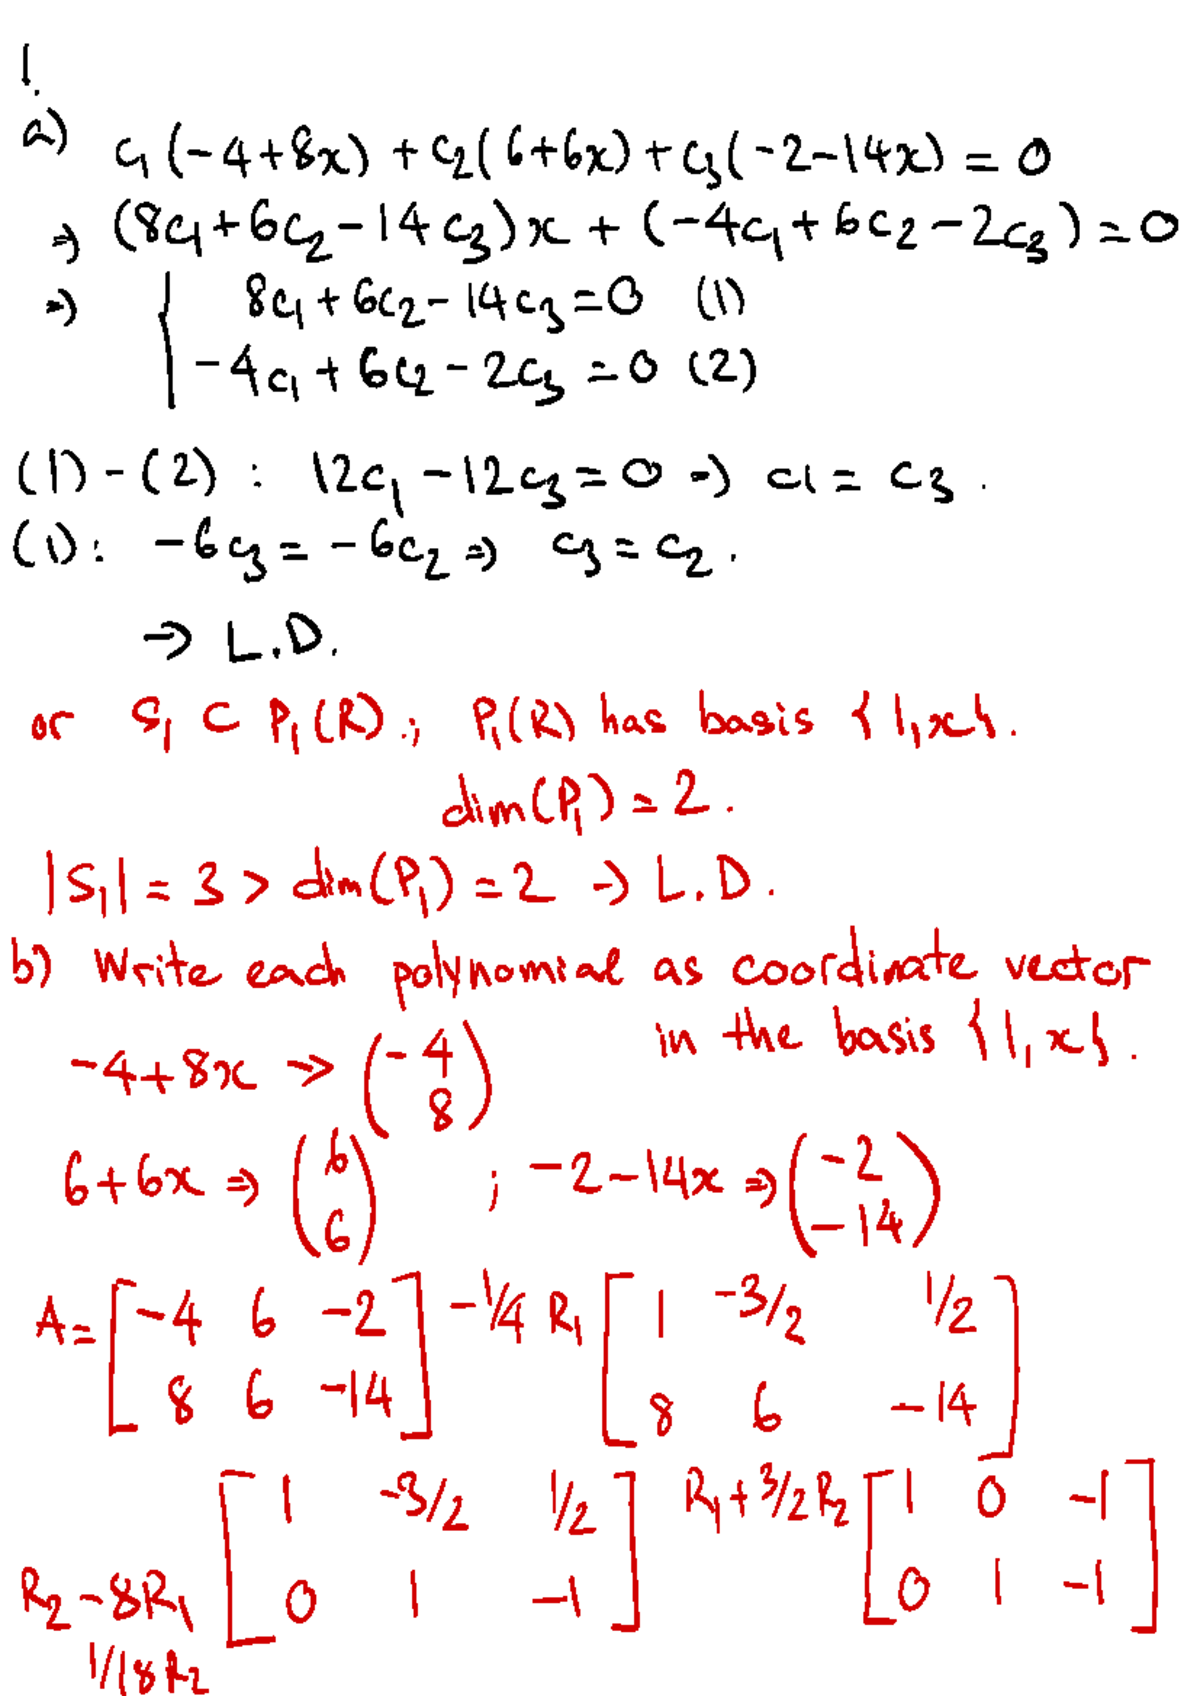 1.
a) c₁(-4+8x) + c₂(6+6x) + c₃(-2-14x) = 0
⇒ (8c₁+6c₂-14c₃)x + (-4c₁+6c₂-2c₃) = 0
⇒ { 8c₁+6c₂-14c₃=0 (1)
-4c₁+6c₂-2c₃=0 (2)
(1)-(2) : 12c₁-12c₃=0 ⇒ c₁=c₃.
(1): -6c₃=-6c₂ ⇒ c₃=c₂.
→ L.D.
or S₁ ⊂ P₁(R).; P₁(R) has basis {1,x}.
dim(P₁)=2.
|S₁|=3 > dim(P₁)=2 → L.D.
b) Write each polynomial as coordinate vector
in the basis {1,x}.
-4+8x → (-4 8)
6+6x ⇒ (6 6) ; -2-14x ⇒ (-2 -14)
A= [-4 6 -2 -1/4 R₁ [1 -3/2 1/2
8 6 -14] 8 6 -14]
[1 -3/2 1/2 R₁+3/2R₂ [1 0 -1
R₂-8R₁ 0 1 -1] 0 1 -1]
1/18R₂